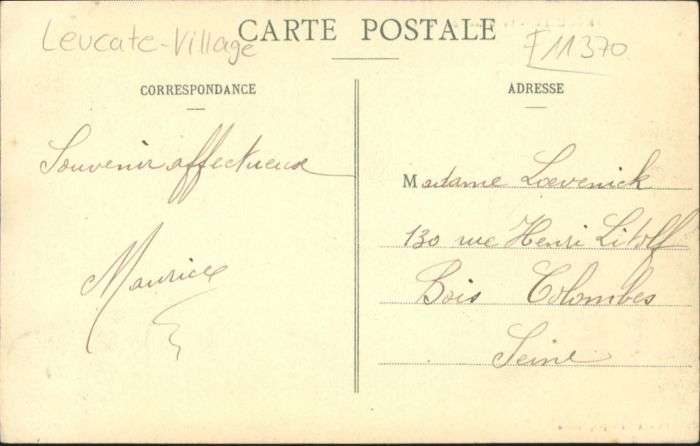 Leucate-Village
CARTE POSTALE
F11370
CORRESPONDANCE
ADRESSE
Souvenir affectueux
Maurice
Madame Loevenick
130 rue Henri Litolf
Bois Colombes
Seine